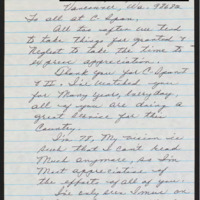 Vancouver, Wa. 98682
To all at C. Span,
All too often we tend
to take things for granted &
Neglect to take the time to
express appreciation.
Thank you for C-Span I
& II. I've watched you
for Many years, everyday.
all of you are doing a
great service for this
Country.
I'm 78, My vision is
such that I can't read
Much anymore, so I'm
Most appreciative of
the efforts of all of you.
I've only been I more on